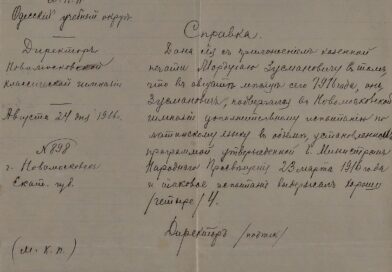 Одесскій учебный округъ
Директоръ
Новомосковской
классической гимназіи
Августа 24 дня 1916г.
№ 898
г. Новомосковскъ
Екат. губ.
(М. К. П.)
Справка.
Дана сія съ приложеніемъ казенной
печати Мордуху Зусмановичу въ томъ,
что въ августѣ мѣсяцѣ сего 1916 года, онъ,
Зусмановичъ, подвергался въ Новомосковской
гимназіи дополнительному испытанію по
латинскому языку въ объемѣ, установленномъ
программой утвержденной г. Министромъ
Народнаго Просвѣщенія 23 марта 1916 года
и таковое испытаніе выдержалъ хорошо
/четыре/ 4.
Директоръ /подпись/